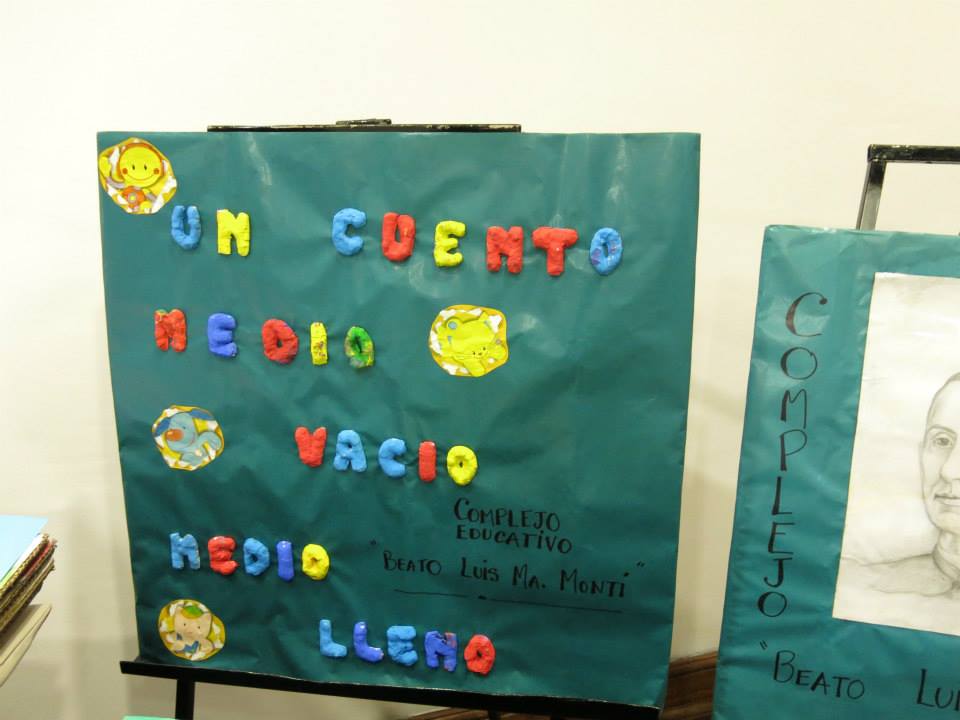 UN CUENTO
MEDIO
VACIO
MEDIO
LLENO
COMPLEJO
EDUCATIVO
"BEATO LUIS MA. MONTI"
COMPLEJO
"BEATO